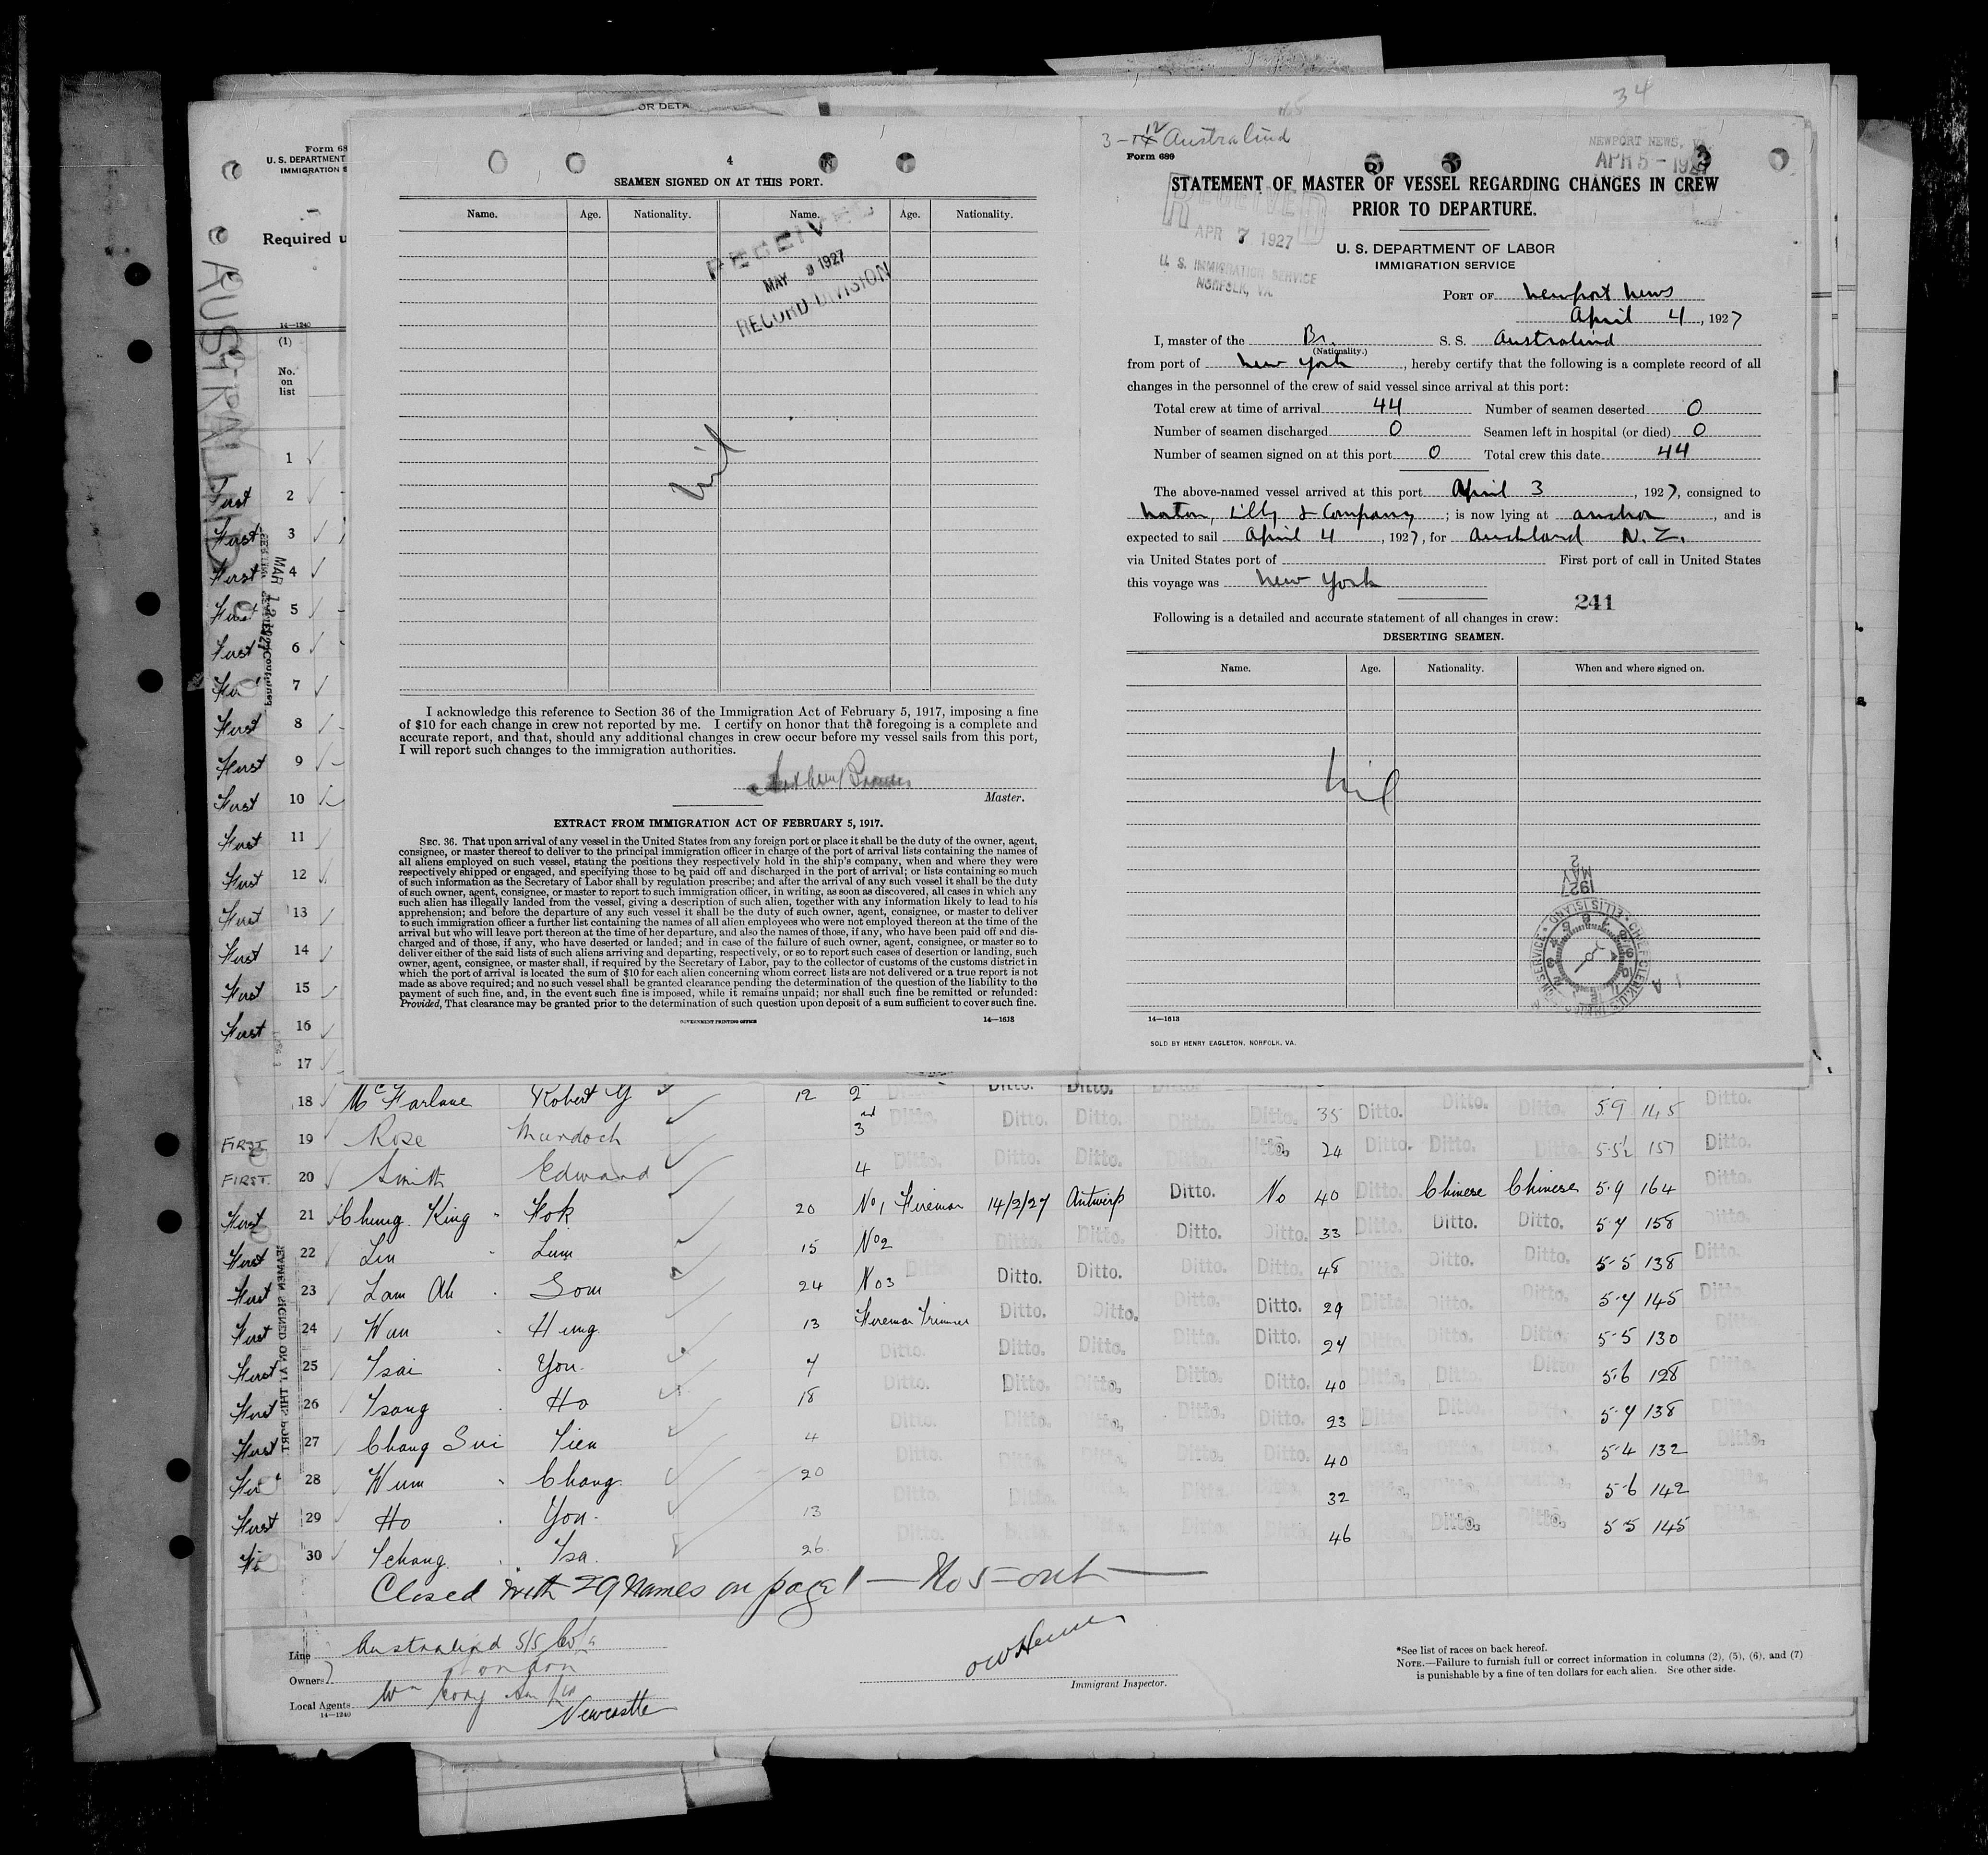 34
3 - 12 Australind
Form 689
NEWPORT NEWS, VA.
APR 5 - 1927
STATEMENT OF MASTER OF VESSEL REGARDING CHANGES IN CREW
PRIOR TO DEPARTURE.
RECEIVED
APR 7 1927
U. S. IMMIGRATION SERVICE
NORFOLK, VA.
U. S. DEPARTMENT OF LABOR
IMMIGRATION SERVICE
PORT OF Newport News
April 4, 1927
I, master of the Br. S. S. Australind
(Nationality.)
from port of New York, hereby certify that the following is a complete record of all
changes in the personnel of the crew of said vessel since arrival at this port:
Total crew at time of arrival 44 Number of seamen deserted 0
Number of seamen discharged 0 Seamen left in hospital (or died) 0
Number of seamen signed on at this port 0 Total crew this date 44
The above-named vessel arrived at this port April 3, 1927, consigned to
Norton, Lilly & Company; is now lying at anchor, and is
expected to sail April 4, 1927, for Auckland N. Z.
via United States port of First port of call in United States
this voyage was New York
241
Following is a detailed and accurate statement of all changes in crew:
DESERTING SEAMEN.
Name. Age. Nationality. When and where signed on.
nil
MAY 2
1927
ELLIS ISLAND
14—1613
SOLD BY HENRY EAGLETON, NORFOLK, VA.
4
SEAMEN SIGNED ON AT THIS PORT.
Name. Age. Nationality. Name. Age. Nationality.
RECEIVED
MAY 9 1927
RECORD DIVISION
nil
I acknowledge this reference to Section 36 of the Immigration Act of February 5, 1917, imposing a fine
of $10 for each change in crew not reported by me. I certify on honor that the foregoing is a complete and
accurate report, and that, should any additional changes in crew occur before my vessel sails from this port,
I will report such changes to the immigration authorities.
Master.
EXTRACT FROM IMMIGRATION ACT OF FEBRUARY 5, 1917.
SEC. 36. That upon arrival of any vessel in the United States from any foreign port or place it shall be the duty of the owner, agent,
consignee, or master thereof to deliver to the principal immigration officer in charge of the port of arrival lists containing the names of
all aliens employed on such vessel, stating the positions they respectively hold in the ship's company, when and where they were
respectively shipped or engaged, and specifying those to be paid off and discharged in the port of arrival; or lists containing so much
of such information as the Secretary of Labor shall by regulation prescribe; and after the arrival of any such vessel it shall be the duty
of such owner, agent, consignee, or master to report to such immigration officer, in writing, as soon as discovered, all cases in which any
such alien has illegally landed from the vessel, giving a description of such alien, together with any information likely to lead to his
apprehension; and before the departure of any such vessel it shall be the duty of such owner, agent, consignee, or master to deliver
to such immigration officer a further list containing the names of all alien employees who were not employed thereon at the time of the
arrival but who will leave port thereon at the time of her departure, and also the names of those, if any, who have been paid off and dis-
charged and of those, if any, who have deserted or landed; and in case of the failure of such owner, agent, consignee, or master so to
deliver either of the said lists of such aliens arriving and departing, respectively, or so to report such cases of desertion or landing, such
owner, agent, consignee, or master shall, if required by the Secretary of Labor, pay to the collector of customs of the customs district in
which the port of arrival is located the sum of $10 for each alien concerning whom correct lists are not delivered or a true report is not
made as above required; and no such vessel shall be granted clearance pending the determination of the question of the liability to the
payment of such fine, and, in the event such fine is imposed, while it remains unpaid; nor shall such fine be remitted or refunded:
Provided, That clearance may be granted prior to the determination of such question upon deposit of a sum sufficient to cover such fine.
GOVERNMENT PRINTING OFFICE 14—1613
OR DETA
Form 68
U. S. DEPARTMENT
IMMIGRATION S
Required u
AUSTRALIND
14—1240
(1)
No. on list
1
First 2
First 3
First 4
First 5
First 6
First 7
First 8
First 9
First 10
First 11
First 12
First 13
First 14
First 15
First 16
17
MAR 12 1927
18 McFarlane Robert G 12 2 Ditto. Ditto. Ditto. Ditto. 35 Ditto. Ditto. Ditto. 5.9 145 Ditto.
FIRST 19 Rose Murdoch 3rd Ditto. Ditto. Ditto. Ditto. Ditto. 24 Ditto. Ditto. Ditto. 5.5½ 157 Ditto.
FIRST. 20 Smith Edward 4 Ditto. Ditto. Ditto.
First 21 Chung King Hok 20 No 1 Fireman 14/2/27 Antwerp Ditto. No 40 Ditto. Chinese Chinese 5.9 164 Ditto.
First 22 Lin Lum 15 No 2 Ditto. Ditto. Ditto. Ditto. 33 Ditto. Ditto. Ditto. 5.7 158 Ditto.
First 23 Lam Ah Som 24 No 3 Ditto. Ditto. Ditto. Ditto. 48 Ditto. Ditto. Ditto. 5.5 138 Ditto.
First 24 Wan Hung 13 Fireman Trimmer Ditto. Ditto. Ditto. Ditto. 29 Ditto. Ditto. Ditto. 5.7 145 Ditto.
First 25 Tsai You 7 Ditto. Ditto. Ditto. Ditto. Ditto. 24 Ditto. Ditto. Ditto. 5.5 130 Ditto.
First 26 Tsang Ho 18 Ditto. Ditto. Ditto. Ditto. Ditto. 40 Ditto. Ditto. Ditto. 5.6 128 Ditto.
First 27 Chang Sui Tien 4 Ditto. Ditto. Ditto. Ditto. Ditto. 23 Ditto. Ditto. Ditto. 5.7 138 Ditto.
First 28 Wum Chang 20 Ditto. Ditto. Ditto. Ditto. Ditto. 40 5.4 132 Ditto.
First 29 Ho You 13 Ditto. Ditto. Ditto. 32 5.6 142
30 Tchang Tsa 26 Ditto. 46 Ditto. Ditto. Ditto. 5.5 145
SEAMEN SIGNED ON AT THIS PORT
Closed with 29 names on page 1 — No 5 — out —
Line Australind S/S Co
Owners London
Local Agents Wm Cory
Newcastle
14—1240
Immigrant Inspector.
*See list of races on back hereof.
NOTE.—Failure to furnish full or correct information in columns (2), (5), (6), and (7)
is punishable by a fine of ten dollars for each alien. See other side.